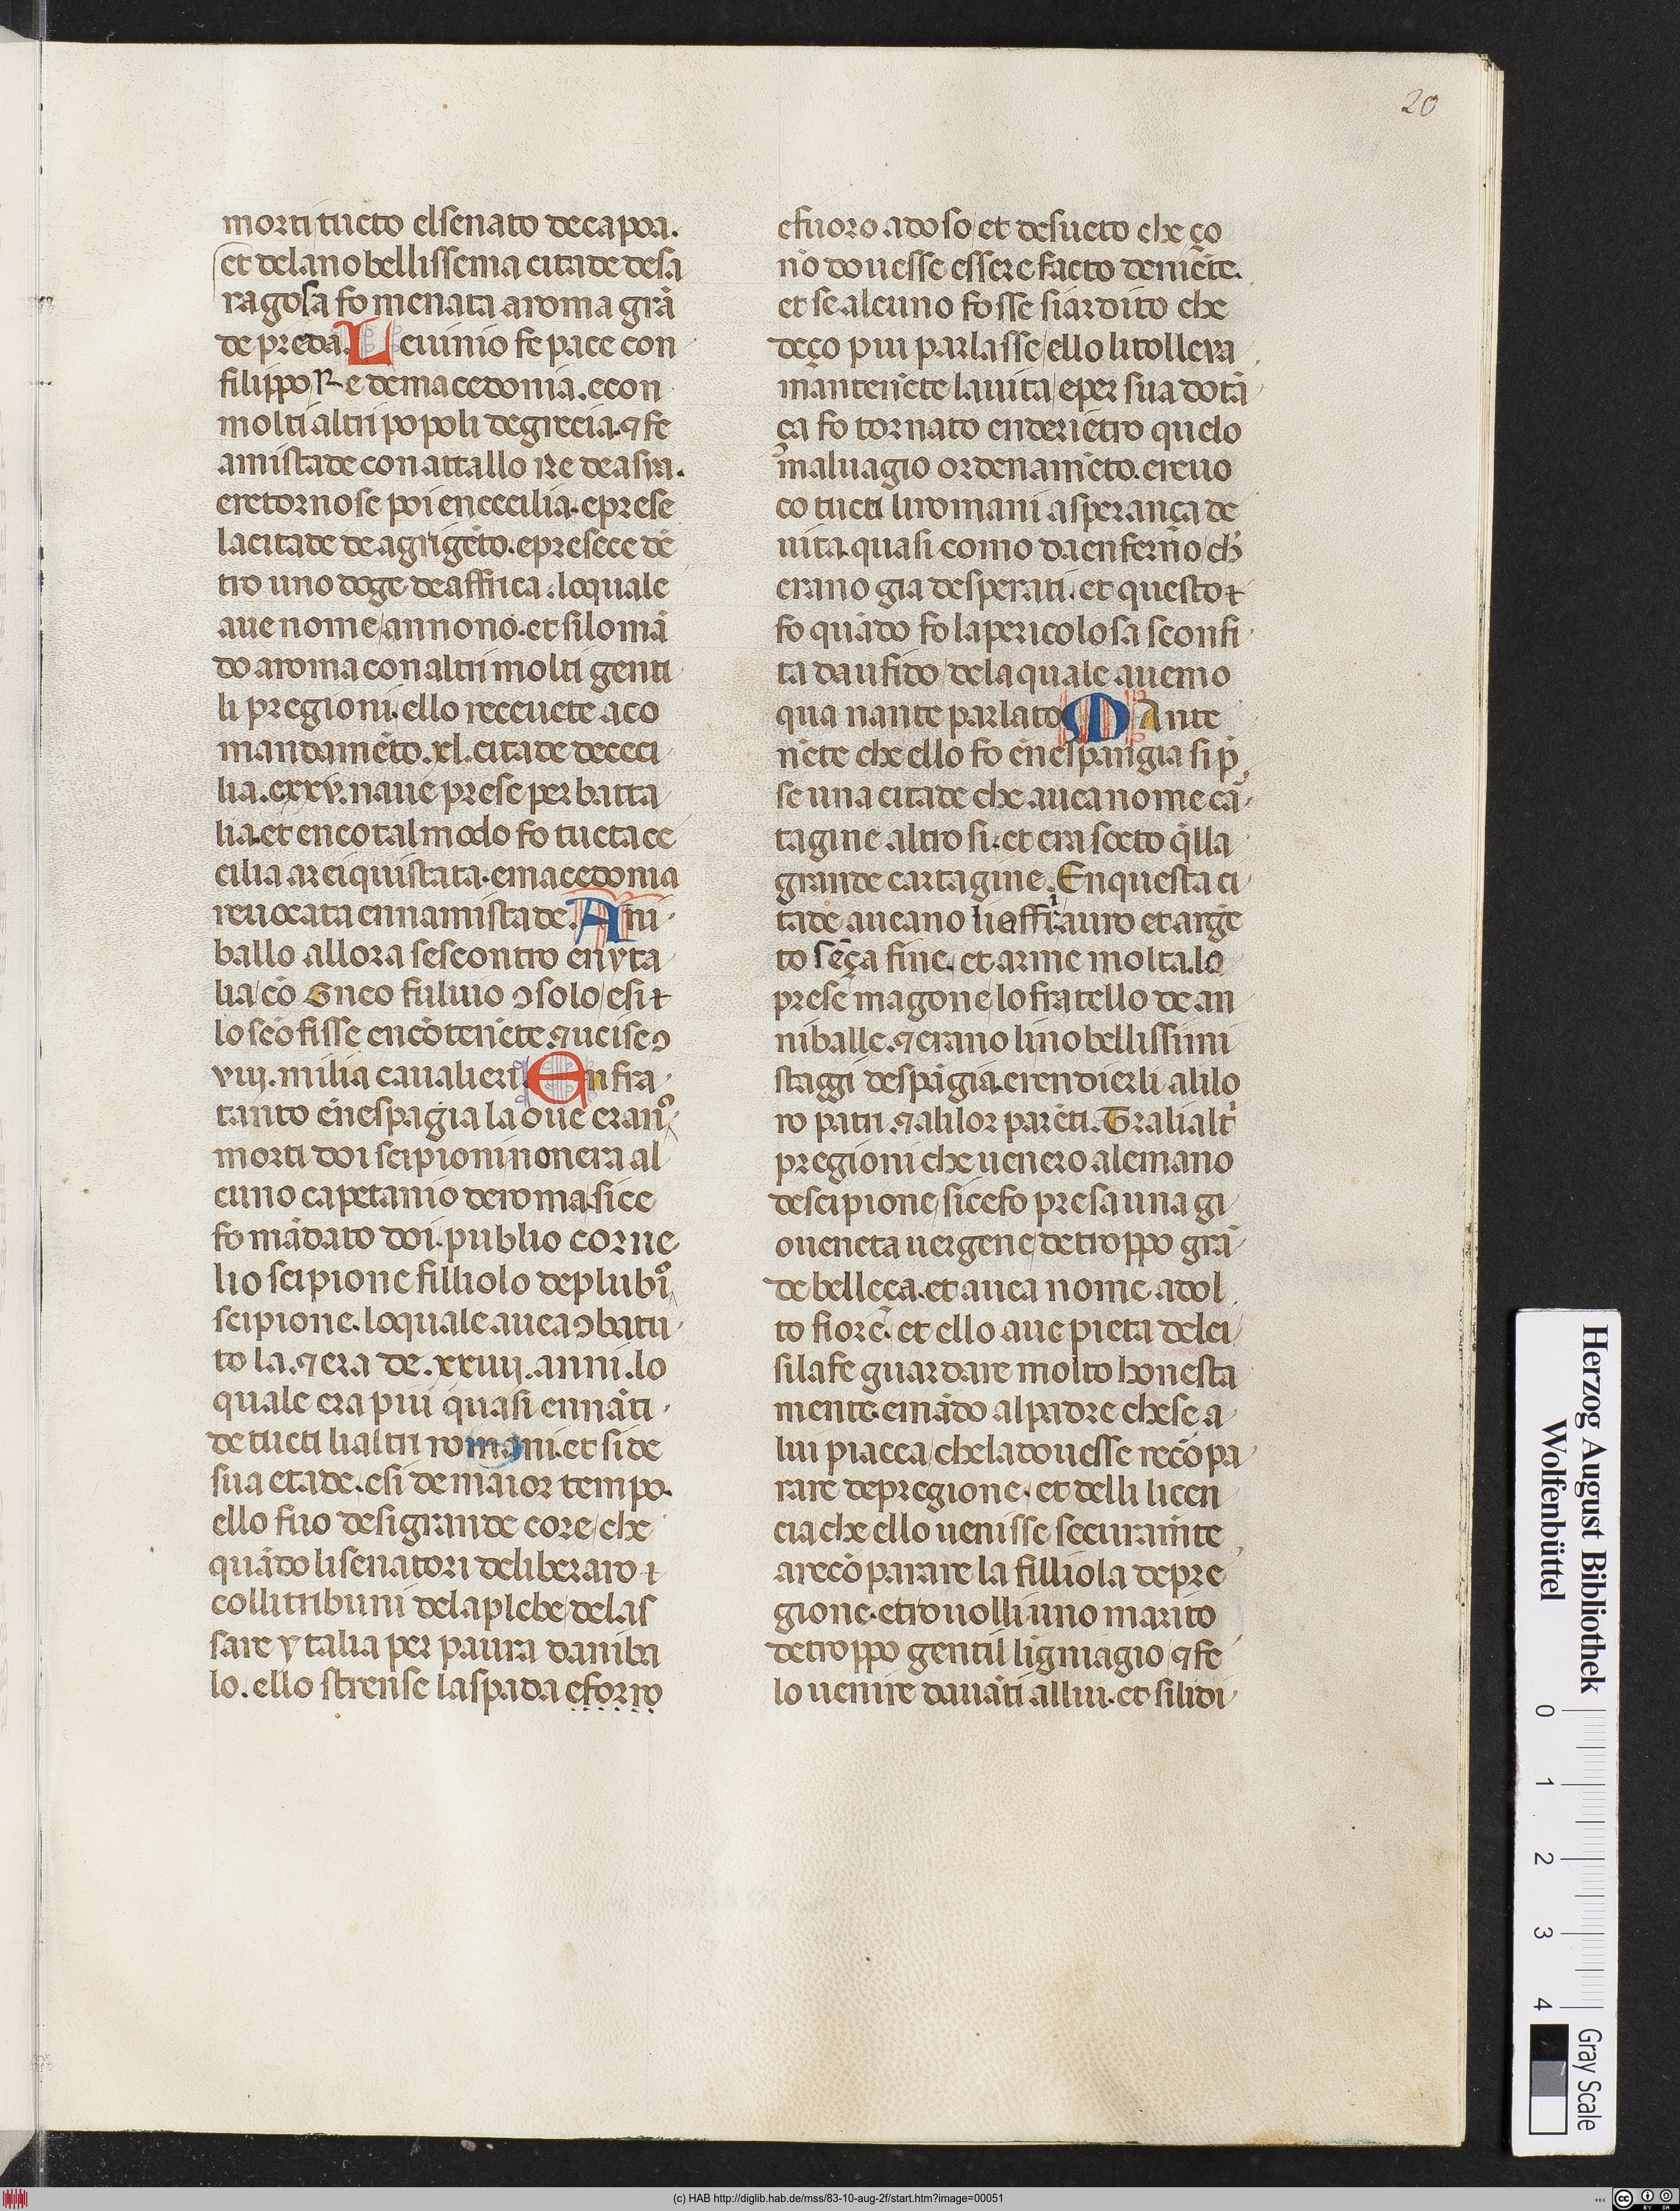 20
morti tucto el senato de capoa.
et dela nobellissema citade de sa
ragosa fo menata a roma grā
de preda. Leuinio fe pace con
filippo Re de macedonia. econ
molti altri popoli de grecia. ⁊ fe
amistade con attallo Re de asya.
eretornose poi en cecilia. eprese
la citade de agrigēto. epresece dē
tro uno doge de affrica. loquale
aue nome annono. et si lo mā
do a roma con altri molti genti
li pregioni. ello receuete aco
mandamēto. xl. citade de ceci
lia. exxv. naue prese per batta
lia. et en cotal modo fo tucta ce
cilia areciquistata. emacedonia
reuocata enn amistade. Ani
ballo allora se scontro en yta
lia cō Gneo fuluio ɔsolo / esi ⁊
lo scōfisse en cōteniēte. ⁊ ucise ɔ
viij. milia caualieri. Enfra
tanto en espagia la oue erano
morti doi scipioni non era al
cuno capetanio de roma. si ce
fo mādato doi. publio corne
lio scipione filliolo de plubio
scipione. loquale auea ɔbatu
to la. ⁊ era de. xxiiij. anni. lo
quale era piu quasi ennāti
de tucti li altri romani. et si de
sua etade. esi de maior tempo.
ello fuo de si grande core / che
quādo li senatori deliberaro ⁊
colli tribuni dela plebe / de las
sare ytalia per paura daniba
lo. ello strense la spada eforro
efuoro adoso / et desueto che ço
nō douesse essere facto de niēte.
et se alcuno fosse si ardito che
deço piu parlasse / ello li tolleva
mantenēte la uita / eper sua dotā
ça fo tornato enderiētro quelo
maluagio ordenamēto. ereuo
co tucti li romani a sperança de
uita. quasi como da enferno / ch
erano gia desperati. et questo ⁊
fo quādo fo la pericolosa sconfi
ta daufido / dela quale auemo
qua nante parlato. Mante
nēte che ello fo en espangia si p
se una citade che auea nome cā
tagine altro si. et era socto qlla
grande cartagine. En questa ci
tade aueano li affri auro et argē
to sēça fine. et arme molta. lo
prese magone / lo fratello de an
niballe. ⁊ erano lino bellissimi
staggi despāgia. erendierli a li lo
ro patri. ⁊ a li lor parēti. Tra li altri
pregioni che uenero ale mano
de scipione / si ce fo presa una gi
oueneta uergene / de troppo grā
de belleça. et auea nome. adol
to fiore. et ello aue pieta de lei /
si la fe guardare molto honesta
mente. emādo al padre che se a
lui piacca / che la douesse recōpa
rare de pregione. et delli licen
cia che ello uenisse securamēte
arecōparare la filliola de pre
gione. et trouolli uno marito
de troppo gentil lignagio / ⁊ fe
lo uenire dauāti allui. et si li di
Herzog August Bibliothek
Wolfenbüttel
0 1 2 3 4
Gray Scale
(c) HAB http://diglib.hab.de/mss/83-10-aug-2f/start.htm?image=00051